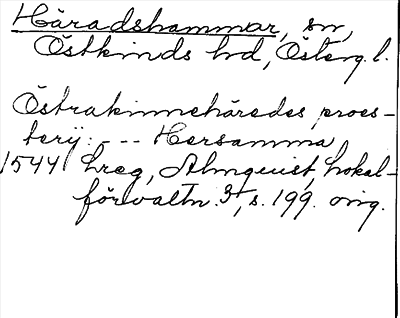 Häradshammar, sn,
Östkinds hd, Österg. l.
Östrakinnehäredes proes-
terij: - - Hersamma
1544 Lreg, Almquist, Lokal-
förvaltn. 3, s. 199. orig.